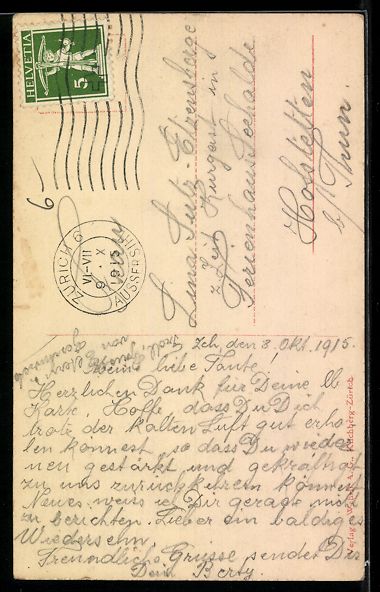 HELVETIA
5
ZÜRICH 6
AUSSERSIHL
VI-VII
9. X
1915
6
Lina Lutz-Etzensberger
z. Zeit Kurgast in
Ferienhaus Seehalde
Hofstetten
b/ Thun.
Zch, den 8. Okt. 1915.
Meine liebe Tante!
Herzlichen Dank für Deine lb
Karte. Hoffe, dass Du Dich
trotz der kalten Luft gut erho-
len könnest, so dass Du wieder
neu gestärkt und gekräftigt
zu uns zurückkehren könnest
Neues weiss ich Dir gerade nicht
zu berichten. Lieber ein baldiges
Wiedersehn.
Freundliche Grüsse sendet Dir
Dein Berty.
Kilchberg-Zürich